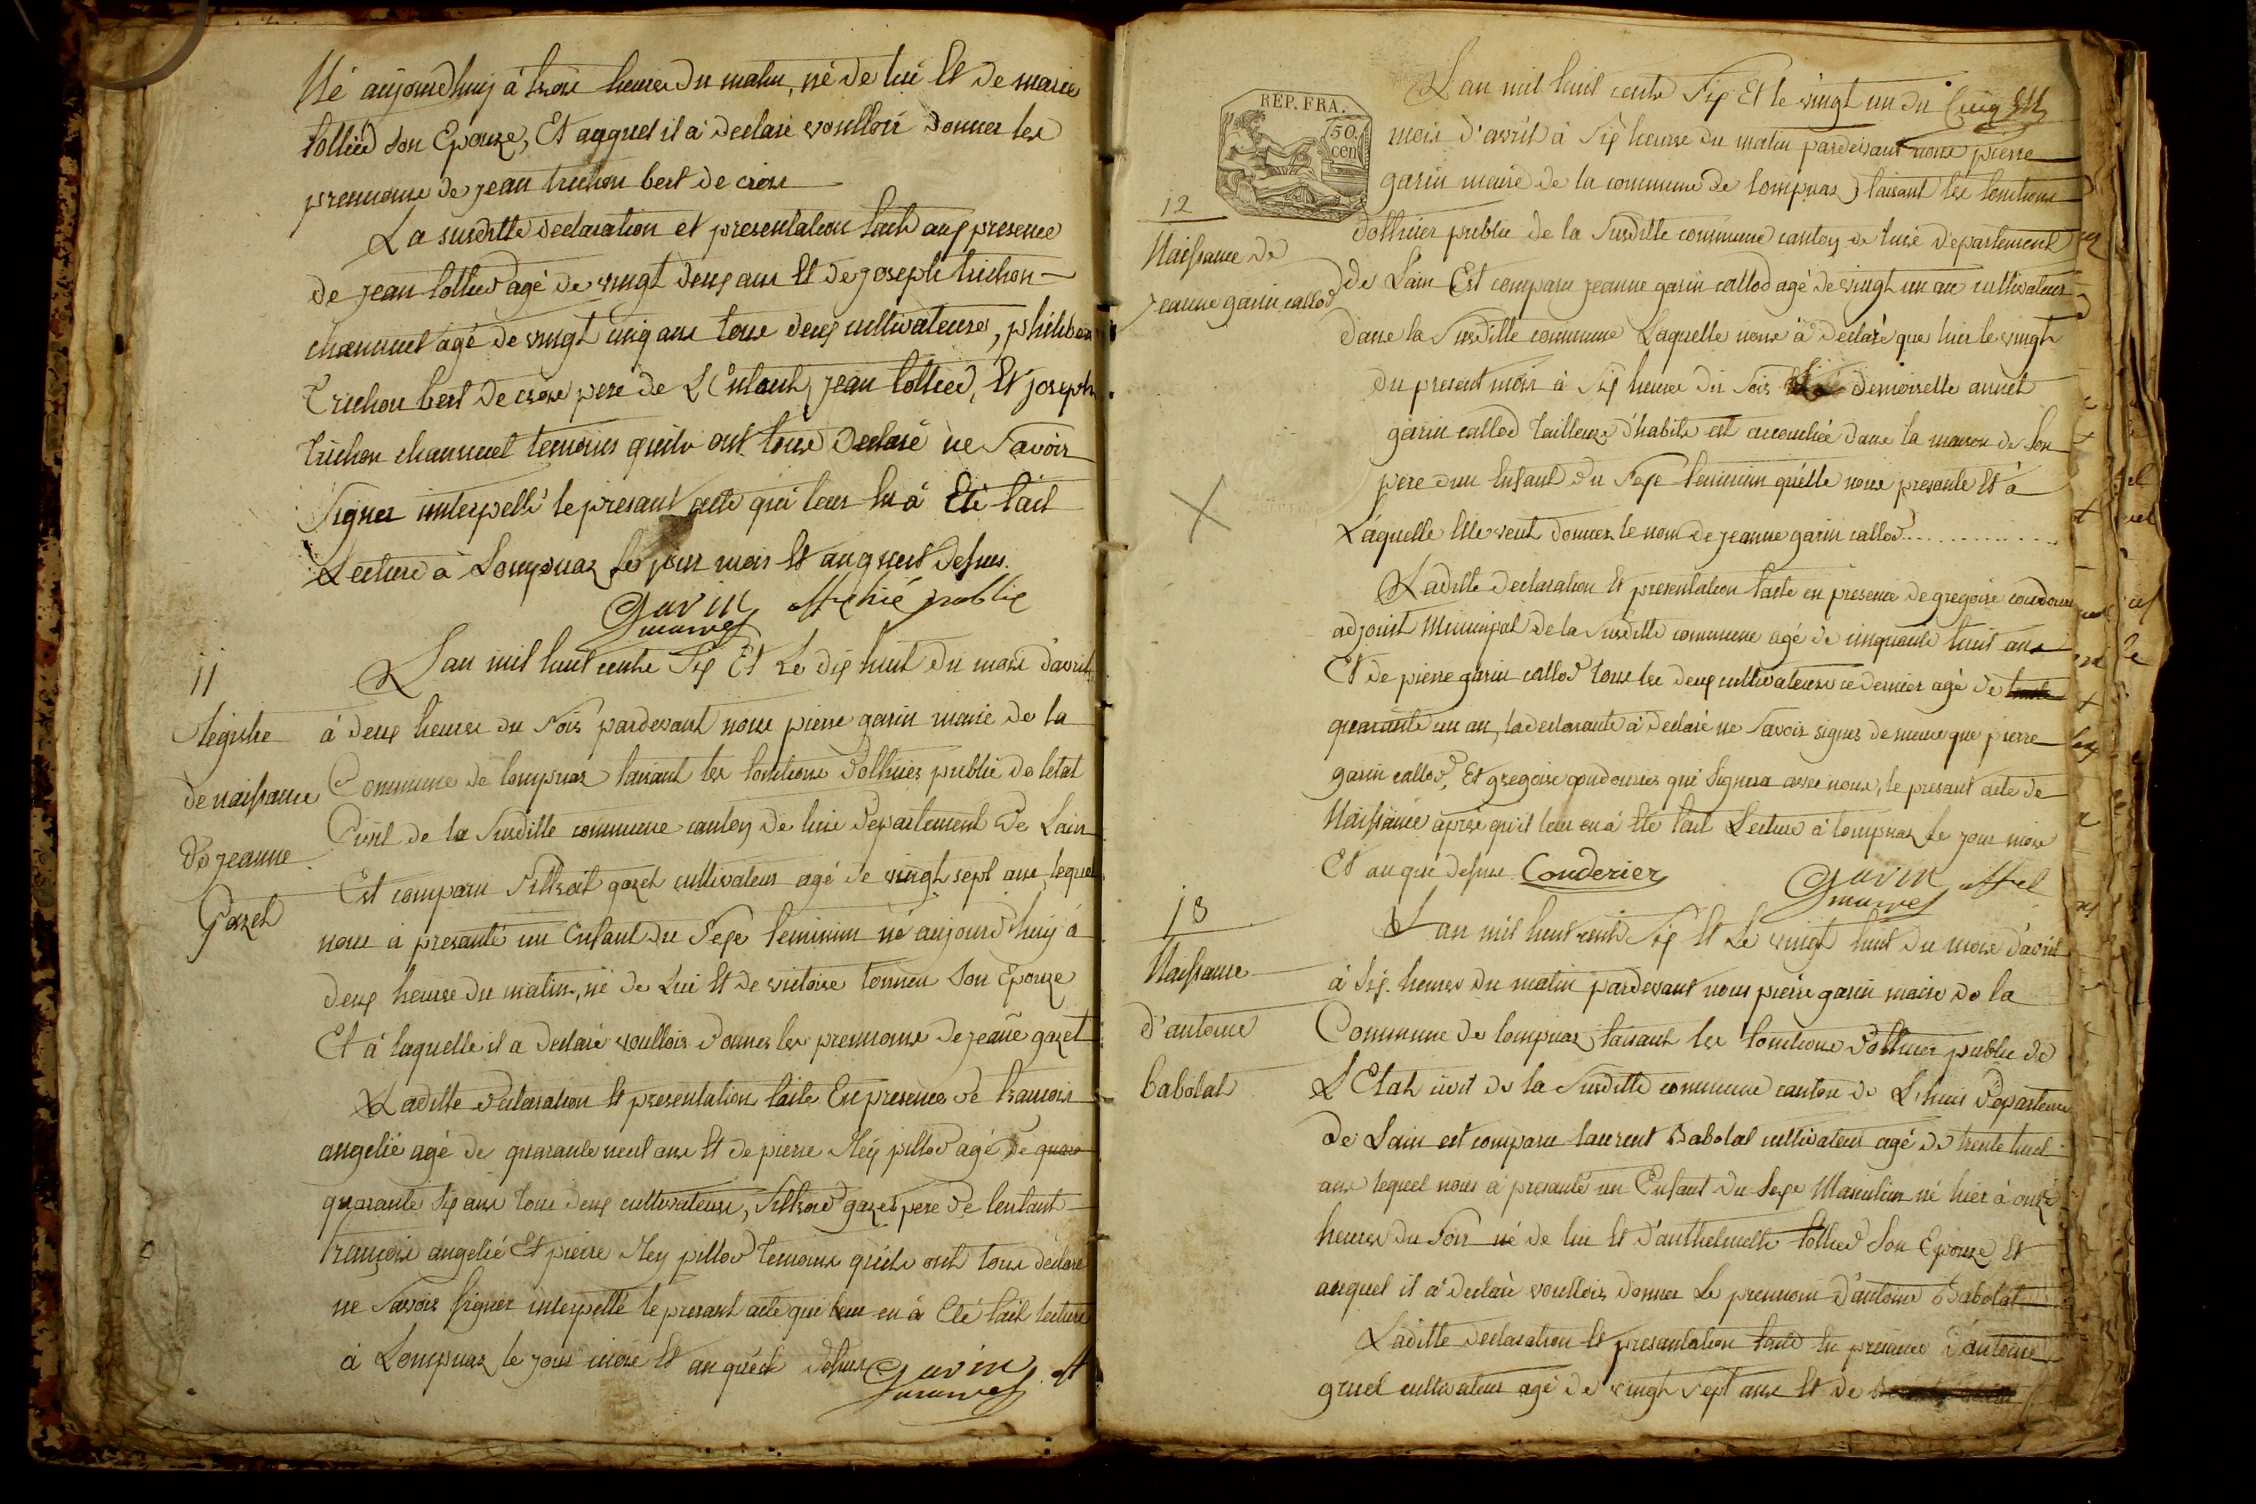 Né aujourdhuy à trois heures du matin, né de lui Et de marie
tollied son Epouze, Et auquel il à declaré voulloir donner les
prennoms de jean truchon bert de crose
La susditte declaration et presentation faite aux presence
de jean tollied agé de vingt deux ans Et de joseph truchon
channuel agé de vingt cinq ans tous deux cultivateurs, philiber
Truchon bert de crose pere de L'Enfant, jean tollied, Et joseph
truchon channuel temoins quils ont tous declaré ne Savoir
Signer interpellé le presant acte qui leur en à Eté fait
Lecture à Lompnaz Le jour mois Et an quest dessus
Garin officié public
maire
11
Registre
de naissance
de jeanne
Gozet
L'an mil huit cents Six Et Le dix huit du mois d'avril
à deux heures du Soir pardevant nous pierre garin maire de la
Commune de lompnaz faisant les fonctions d'officier public de letat
Civil de la Susditte commune canton de luis departement de Lain
Est comparu gozet cultivateur agé de vingt sept ans, lequel
nous à presanté un Enfant du Sexe feminin né aujourd'huy à
deux heures du matin, né de Lui Et de victoire tonneu Son Epouze
Et à laquelle il a declaré voulloir donner les prennoms de jeane gozet
Laditte declaration Et presentation faite En presence de francois
angelié agé de quarante neuf ans Et de pierre Rey pillod agé de quara
quarante Six ans tous deux cultivateurs, gozet pere de lenfant
françois angelié Et pierre Rey pillod temoins quils ont tous declaré
ne Savoir Signer interpellé le presant acte qui leur en à Eté fait lecture
à Lompnaz le jour mois Et an quést dessus Garin off
maire
REP. FRA.
50
cen
12
Naissance de
jeanne garin callod
L'an mil huit cents Six Et le vingt un du
mois d'avril à Six heures du matin pardevant nous pierre
garin maire de la commune de lompnaz, faisant les fonctions
d'officier public de la Susditte commune canton de luis departement
de Lain Est comparu jeanne garin callod agé de vingt un an cultivateur
dans la Susditte commune Laquelle nous à declaré que hier le vingt
du present mois à Six heures du Soir demoiselle annet
garin callod tailleuze d'habits est accouchée dans la maison de Son
pere dun Enfant du Sexe feminin quélle nous presante Et à
Laquelle Elle veut donner le nom de jeanne garin callod
Laditte declaration Et presentation faite en presence de gregoire coudourier
adjoint Municipal de la Susditte commune agé de cinquante huit ans
Et de pierre garin callod tous les deux cultivateurs ce dernier agé de
quarante un an, la declarante à declaré ne Savoir signer de meme que pierre
garin callod, Et gregoire coudourier qui Signera avec nous, le presant acte de
Naissance apres qu'il leur en à Eté fait Lecture à lompnaz Le jour mois
Et an que dessus. Couderier Garin offié
maire
13
Naissance
d'antoine
babolat
L'an mil huit cents Six Et Le vingt huit du mois d'avril
à Six heures du matin pardevant nous pierre garin maire de la
Commune de lompnaz, faisant les fonctions d'officier public de
L'Etat civil de la Susditte commune canton de L'huis departement
de Lain est comparu laurent Babolat cultivateur agé de trente huit
ans lequel nous à presanté un Enfant du Sexe Masculin né hier à onze
heures du Soir né de lui Et d'anthelmette tollied Son Epouze Et
auquel il à declaré voulloir donner Le prennom d'antoine Babolat
Laditte declaration Et presantation faite En presence d'antoine
gruel cultivateur agé de vingt Sept ans Et de